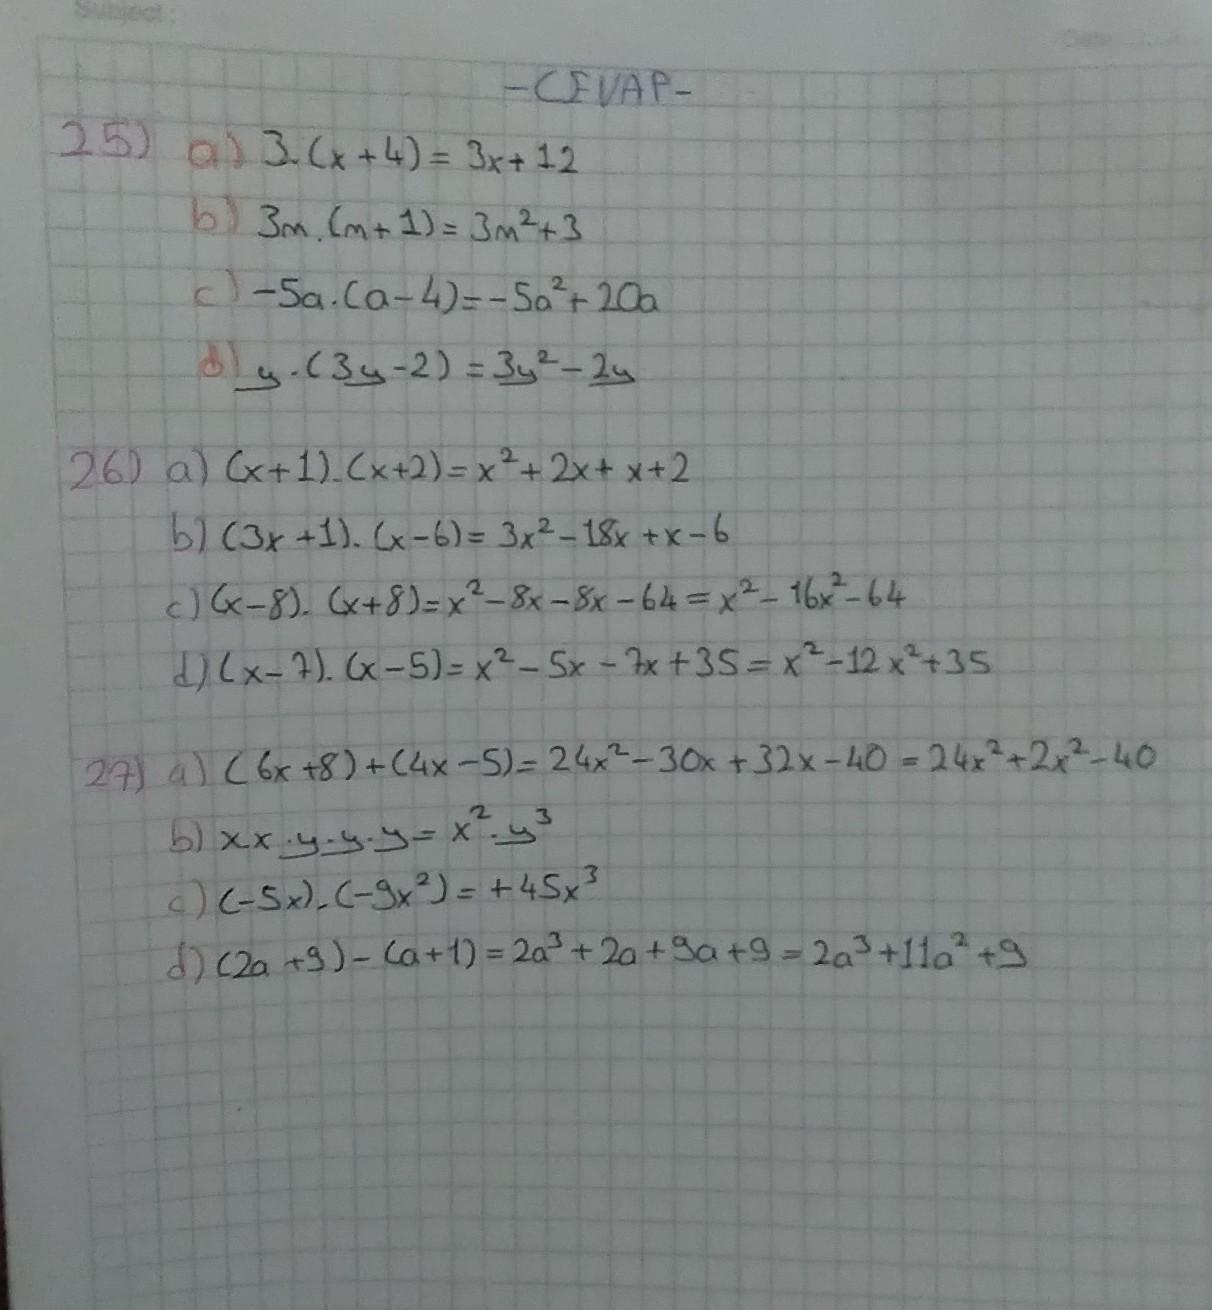 Subject:
Date
-CEVAP-
25) a) 3.(x+4)=3x+12
b) 3m.(m+1)=3m²+3
c) -5a.(a-4)=-5a²+20a
d) y.(3y-2)=3y²-2y
26) a) (x+1).(x+2)=x²+2x+x+2
b) (3x+1).(x-6)=3x²-18x+x-6
c) (x-8).(x+8)=x²-8x-8x-64=x²-16x²-64
d) (x-7).(x-5)=x²-5x-7x+35=x²-12x²+35
27) a) (6x+8)+(4x-5)=24x²-30x+32x-40=24x²+2x²-40
b) xx.y.y.y=x².y³
c) (-5x).(-9x²)=+45x³
d) (2a+9)-(a+1)=2a³+2a+9a+9=2a³+11a²+9